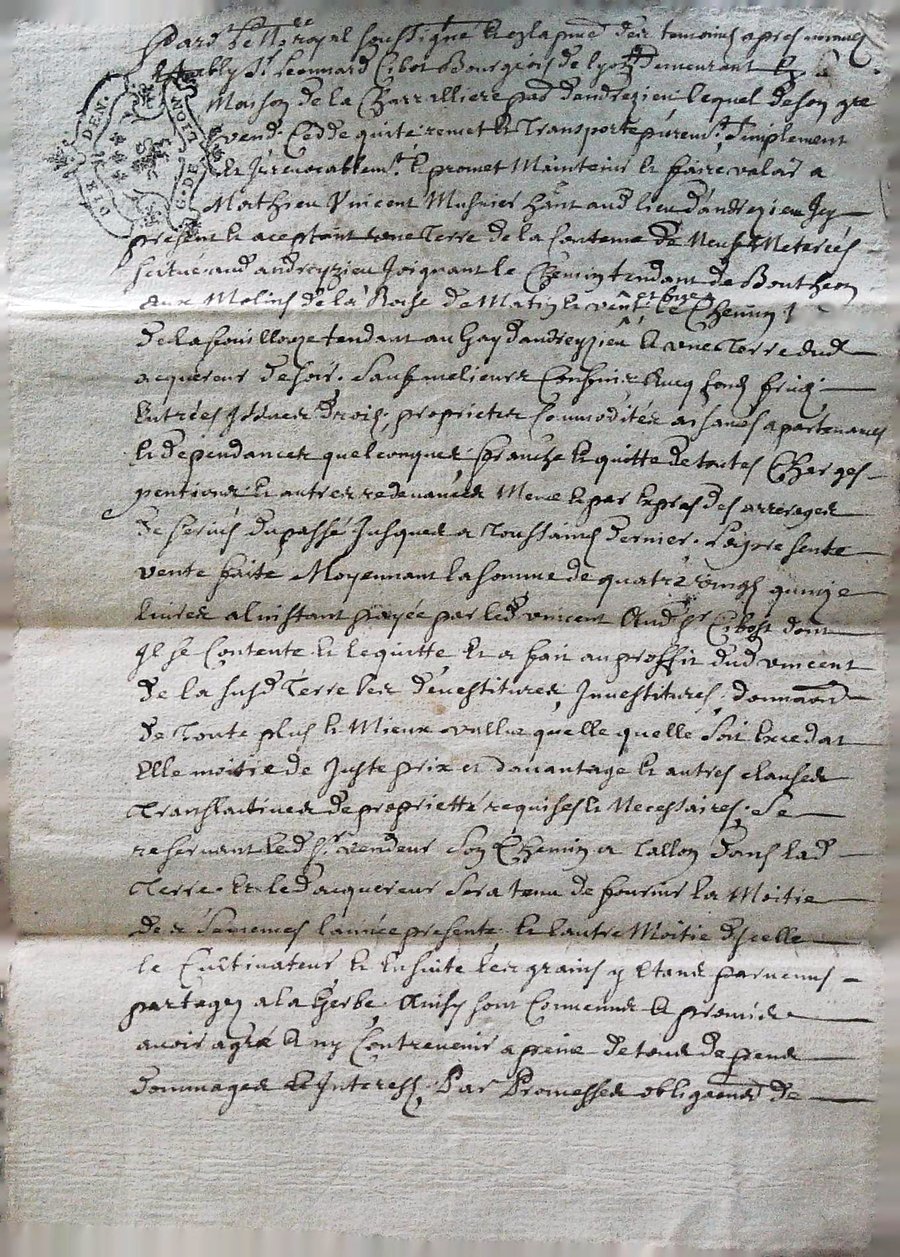 Pard. le No.re royal soussigne et en la pnce des temoins apres nommes
Estably Sr Leonnard Cibost Bourgeois de lyon demeurant en sa
Maison de la Charrilliere par. dandrezieu lequel de son gre
vend Cedde quite remet et Transporte puremt. simplement
et Jrrevocablemt. et promet Maintenir et faire valoir a
Mathieu Vincent Musnier hant aud lieu dandrezieu Jcy
present et aceptant une Terre de la Contenue de Neuf Meterées
scitué aud andreyzieu Joignant le Chemin tendant de Bouthéon
aux Molins de la Roise de Matin et vent et bize le Chemin
de la fouillouze tendant au Gay dandreyzieu et une Terre dud
acquereur de soir. Sauf melieurs Confins Avecq fonds fruicts
Entrées Jssues Droits, proprietes Commodités aisances apartenances
et dependances quelconques, franche et quitte de toutes Charges
pentions et autres redevances Meme et par Expres des arrerages
de servis du passé Jusques a Toussaincts dernier. La presente
vente faite Moyennant la somme de quatre vingts quinze
livres a linstant payée par led vincent Aud Sr Cibost dont
Jl se Contente et le quitte et a fait au proffit dud vincent
de la susd Terre les devestitures, Jnvestitures, donnaons
de Toute plus et Mieux vallue quelle quelle soit Excedat
Elle moitié de Juste prix et davantage et autres clauses
Translactives de proprietté requises et Necessaires, Se
reservant led Sr vendeur son Chemin a Tallon dans lad
Terre. Et led acquereur sera tenu de fournir la Moitie
des Semences lannée presente et lautre Moitie dJcelle
le Cultivateur et Ensuite les grains y Etans parvenus
partagés a la Gerbe, Ainsy sont Convenus et promis
avoir agré et ny Contrevenir a peine de tous depens
dommages et Jnterests, Par Promesses obligaons de
G. DE LION
DEN.